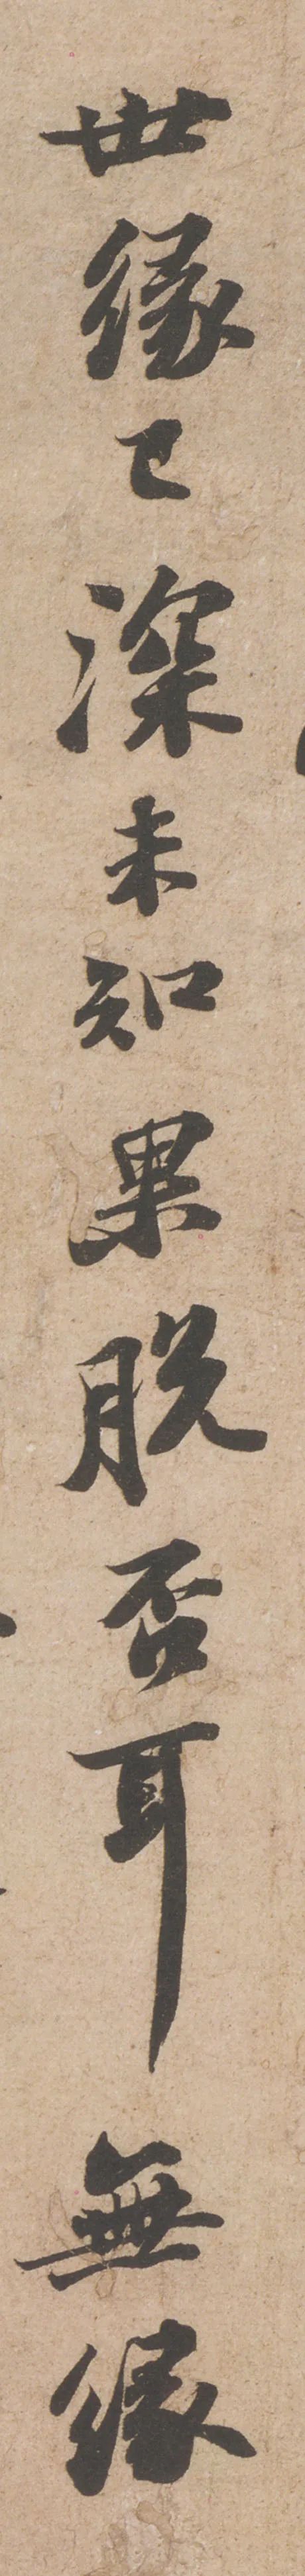 世緣已深未知果脫否耳無緣